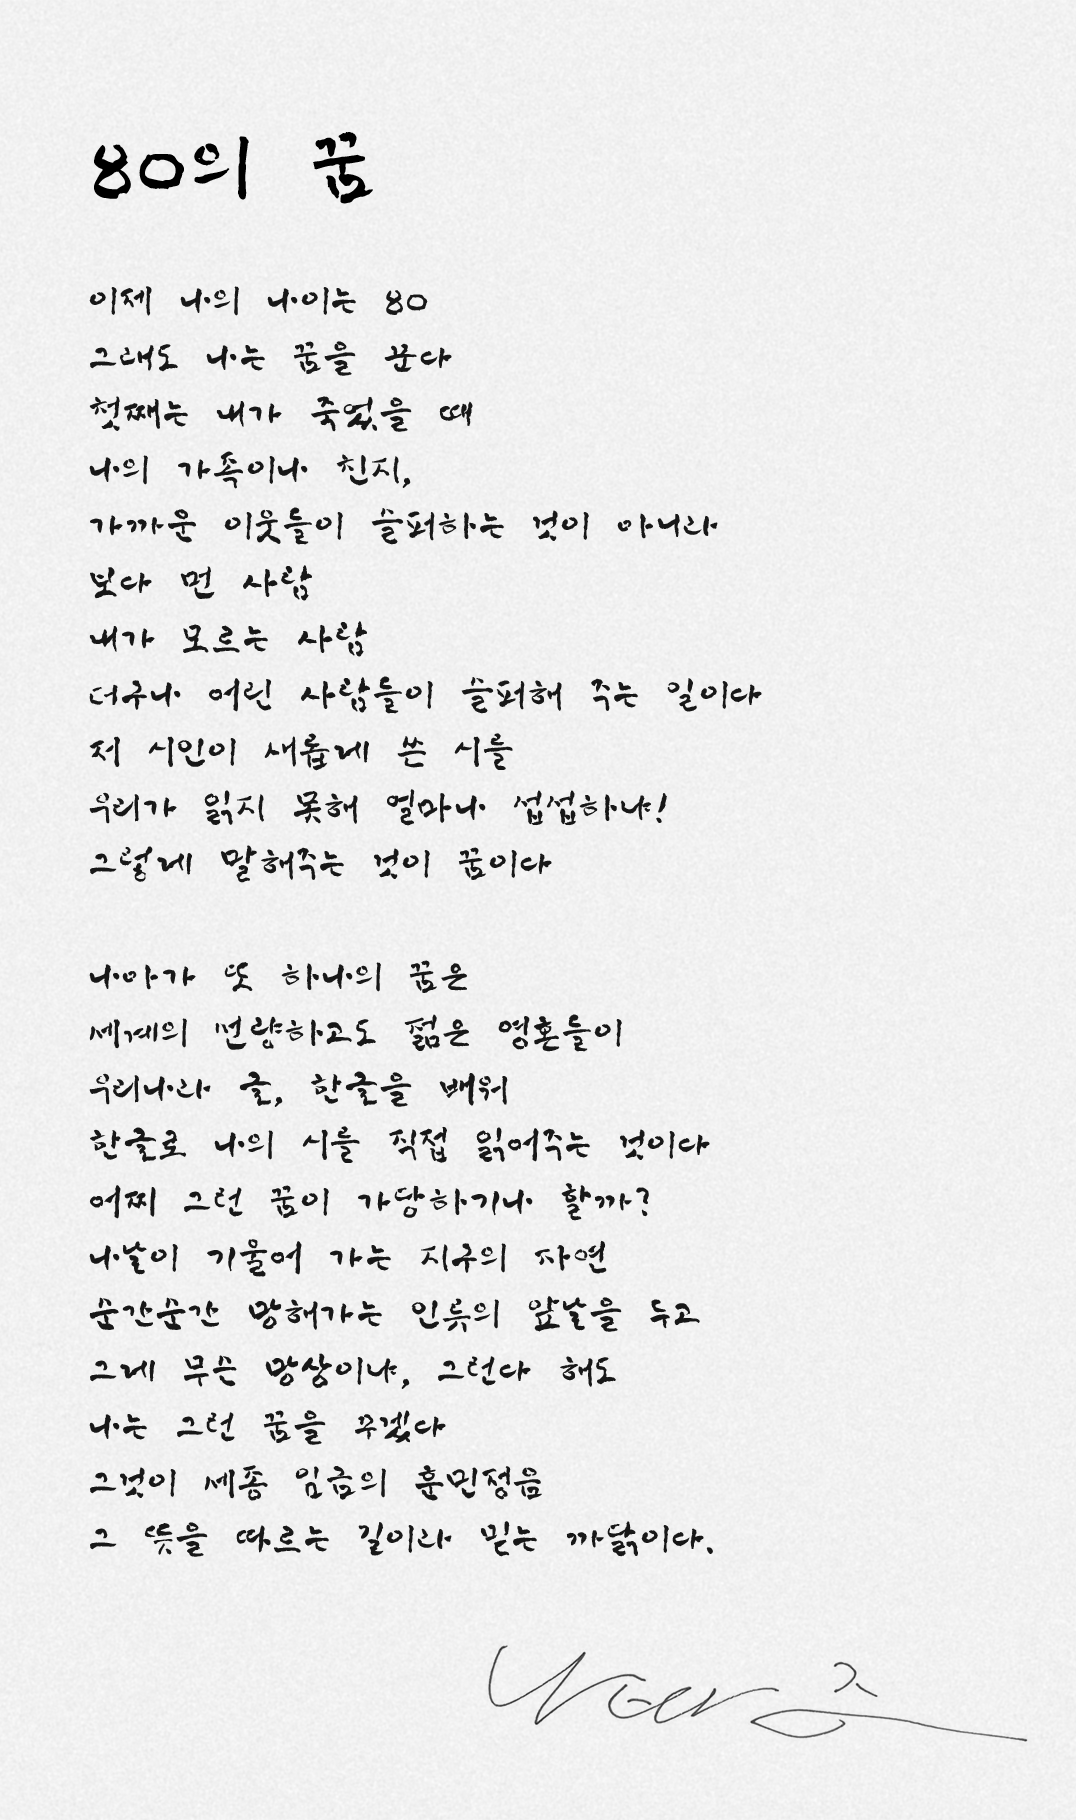 80의 꿈
이제 나의 나이는 80
그래도 나는 꿈을 꾼다
첫째는 내가 죽었을 때
나의 가족이나 친지,
가까운 이웃들이 슬퍼하는 것이 아니라
보다 먼 사람
내가 모르는 사람
더구나 어린 사람들이 슬퍼해 주는 일이다
저 시인이 새롭게 쓴 시를
우리가 읽지 못해 얼마나 섭섭하냐!
그렇게 말해주는 것이 꿈이다
나아가 또 하나의 꿈은
세계의 선량하고도 젊은 영혼들이
우리나라 글, 한글을 배워
한글로 나의 시를 직접 읽어주는 것이다
어찌 그런 꿈이 가당하기나 할까?
나날이 기울어 가는 지구의 자연
순간순간 망해가는 인류의 앞날을 두고
그게 무슨 망상이냐, 그런다 해도
나는 그런 꿈을 꾸겠다
그것이 세종 임금의 훈민정음
그 뜻을 따르는 길이라 믿는 까닭이다.
나태주